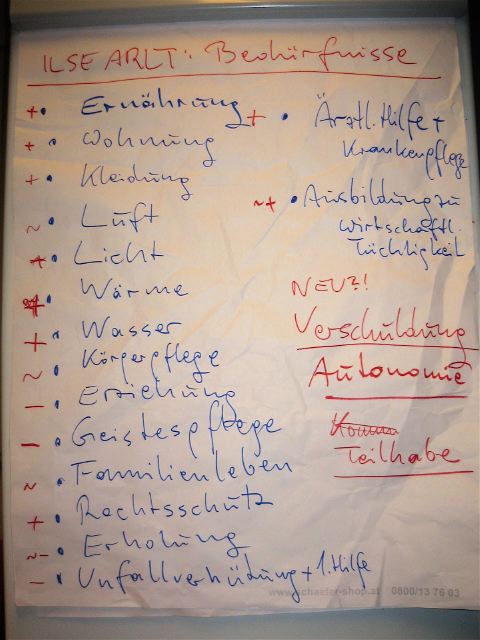 ILSE ARLT: Bedürfnisse
+ • Ernährung
+ • Wohnung
+ • Kleidung
~ • Luft
+ • Licht
+ • Wärme
+ • Wasser
~ • Körperpflege
– • Erziehung
– • Geistespflege
~ • Familienleben
+ • Rechtsschutz
~– • Erholung
– • Unfallverhütung + 1. Hilfe
+ • Ärztl. Hilfe +
Krankenpflege
~+ • Ausbildung zu
wirtschaftl.
Tüchtigkeit
NEU?!
Verschuldung
Autonomie
Teilhabe
www.schaefer-shop.at 0800/13 76 03